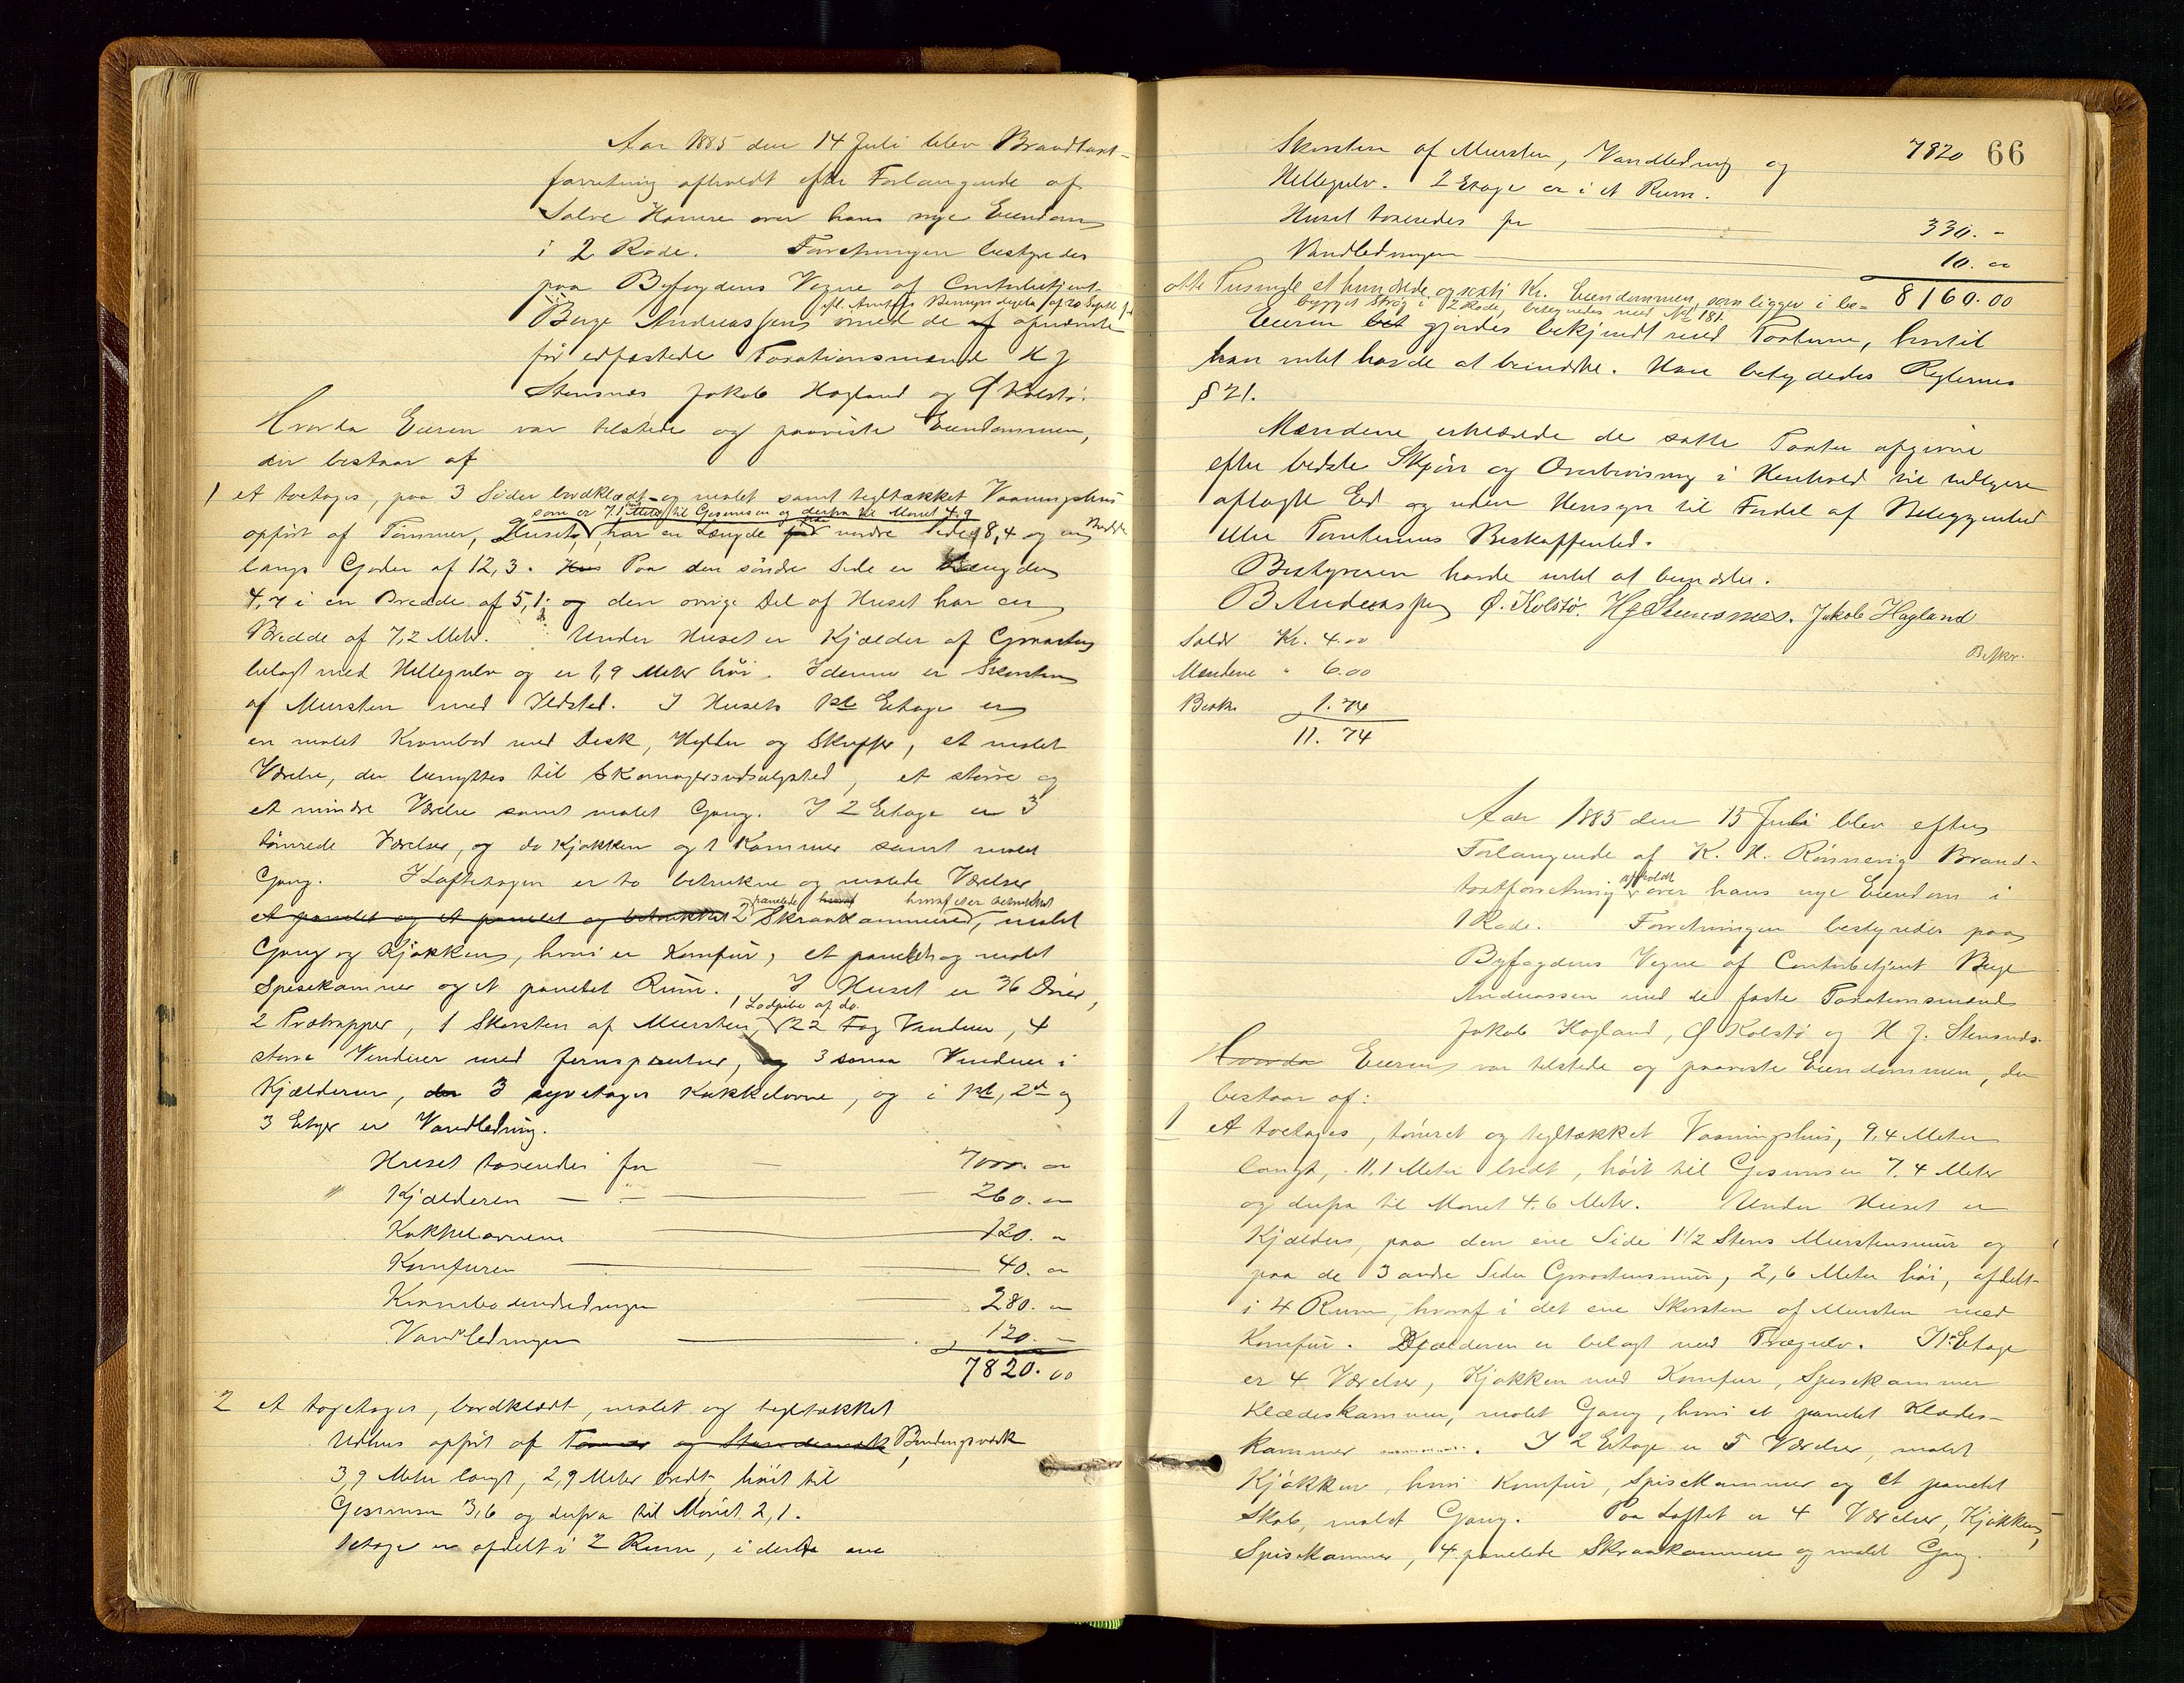 Aar 1885 den 14 Juli blev Brandtaxt-
forretning afholdt efter Forlangende af
Salve Hamre over hans nye Eiendom
i 2 Rode. Forretningen bestyredes
paa Byfogdens Vegne af Contorbetjent
Berge Andreassen med de opnævnte
før edfæstede Taxationsmænd H J
Stensnes Jakob Hagland og Ø Kolstø.
Hvorda Eieren var tilstede og paaviste Eiendommen,
der bestaar af
1 et toetages, paa 3 Sider bordklædt og malet samt tegltækket Vaaningshus
som er 7.1 Meter til Gesimsen og derfra til Mønet 4.9
opført af Tømmer, Huset har en Længde nedre Side 8,4 og en Bredde
langs Gaden af 12,3. Paa den søndre Side er Længden
4,7 i en Bredde af 5,1; og den øvrige Del af Huset har en
Bredde af 7,2 Meter. Under Huset er Kjælder af Graasten
belagt med Hellegulv og er 1,9 Meter høi. I denne er Skorsten
af Mursten med Ildsted. I Husets 1ste Etage er
en malet Krambod med Disk, Hylder og Skuffer, et malet
Værelse, der benyttes til Skomagerudsalgsted, et større og
et mindre Værelse samt malet Gang. I 2 Etage er 3
tømrede Værelser, og do Kjøkken og 1 Kammer samt malet
Gang. I Loftetagen er to betrukne og malede Værelser
panelede hvoraf et er betrukket
et panelet og et panelet og betrukket 2 Skraakammere, malet
Gang og Kjøkken, hvori er Komfur, et panelet og malet
Spisekammer og et panelet Rum. I Huset er 36 Døre,
1 Lodpibe af do.
2 Trætrapper, 1 Skorsten af Mursten, 22 Fag Vinduer, 4
store Vinduer med Jernsprinkler, og 3 smaa Vinduer i
Kjælderen, 3 syvetages Kakkelovne, og i 1ste, 2den og
3 Etage er Vandledning.
Huset taxeredes for 7000. 00
" Kjælderen — " — 260. 00
Kakkelovnene 120. 00
Komfuren 40. 00
Krambodindredningen 280. 00
Vandledningen 120. —
7820. 00
2 et toetages, bordklædt, malet og tegltækket
Udhus opført af Tømmer og Stændermærk Bindingsværk
3,9 Meter langt, 2,9 Meter bredt, høit til
Gesimsen 3,6 og derfra til Mønet 2,1.
1 Etage er afdelt i 2 Rum, i det ene
66
Skorsten af Mursten, Vandledning og 7820
Hellegulv. 2 Etage er i et Rum.
Huset taxeredes for 330. -
Vandledningen 10. 00
otte Tusinde et hundrede og sexti Kr. Eiendommen, som ligger i be- 8160.00
bygget Strøg i 2 Rode, betegnedes med No 181.
Eieren gjordes bekjendt med Taxterne, hvortil
han intet havde at erindre. Han betydedes Reglernes
§ 21.
Mændene erklærede de satte Taxter afgivne
efter bedste Skjøn og Overbevisning i Henhold til tidligere
aflagte Ed og uden Hensyn til Fordel af Beliggenhed
eller Tomternes Beskaffenhed.
Bestyreren havde intet at erindre.
B Andreassen Ø. Kolstø. H J Stensnes. Jakob Hagland
Beskr.
Salær Kr. 4.00
Mændene " 6.00
Beskr 1. 74
11. 74
Aar 1885 den 15 Juli blev efter
Forlangende af K. H. Rønnevig Brand-
taxtforretning afholdt over hans nye Eiendom i
1 Rode. Forretningen bestyredes paa
Byfogdens Vegne af Contorbetjent Berge
Andreassen med de faste Taxationsmænd
Jakob Hagland, Ø Kolstø og H J. Stensnes.
Hvorda Eieren var tilstede og paaviste Eiendommen, der
bestaar af:
1 et toetages, tømret og tegltækket Vaaningshus, 9,4 Meter
langt, 11.1 Meter bredt, høit til Gesimsen 7.4 Meter
og derfra til Mønet 4.6 Meter. Under Huset er
Kjælder, paa den ene Side 1½ Stens Murstensmur og
paa de 3 andre Sider Graastensmur, 2,6 Meter høi, afdelt
i 4 Rum, hvoraf i det ene Skorsten af Mursten med
Komfur. Kjælderen er belagt med Trægulv. I 1ste Etage
er 4 Værelser, Kjøkken med Komfur, Spisekammer
Klædeskammer, malet Gang, hvori et panelet Klædes-
kammer. I 2 Etage er 5 Værelser, malet
Kjøkken, hvori Komfur, Spiskammer og et panelet
Skab, malet Gang. Paa Loftet er 4 Værelser, Kjøkken,
Spiskammer, 4 panelede Skraakammere og malet Gang.